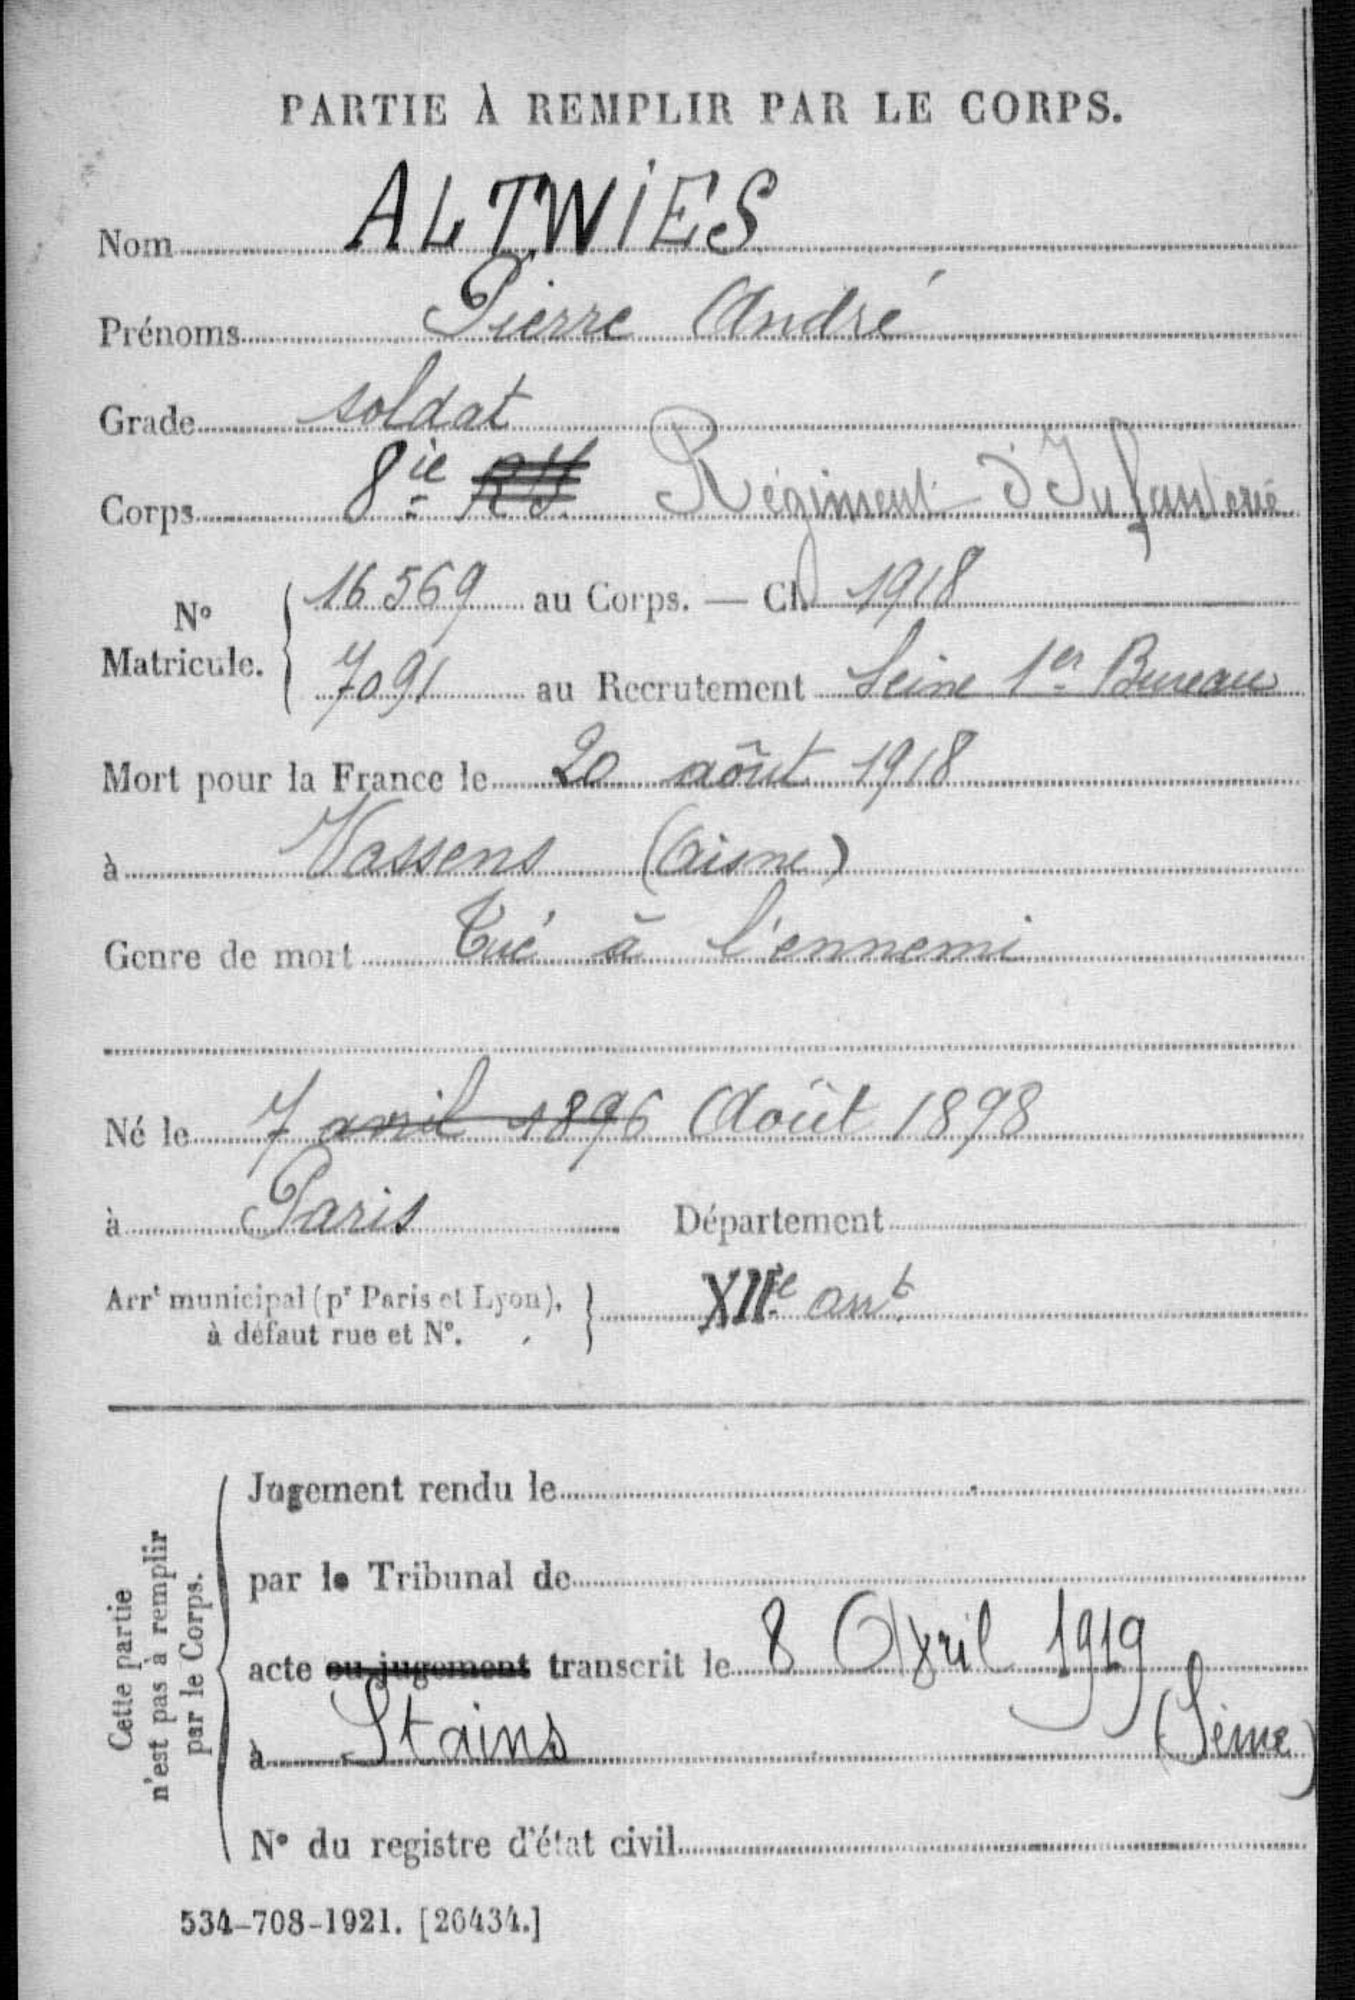 PARTIE À REMPLIR PAR LE CORPS.
Nom ALTWIES
Prénoms Pierre André
Grade soldat
Corps 8ie R.I. Régiment d'Infanterie
N° Matricule. 16569 au Corps. — Cl. 1918
7091 au Recrutement Seine 1er Bureau
Mort pour la France le 20 aôut 1918
à Vassens (Aisne)
Genre de mort Tué à l'ennemi
Né le 7 avril 1896 Août 1898
à Paris Département
Arrt municipal (pr Paris et Lyon), à défaut rue et N°. XIIe arrt
Cette partie n'est pas à remplir par le Corps.
Jugement rendu le
par le Tribunal de
acte ou jugement transcrit le 8 Avril 1919
à Stains (Seine)
N° du registre d'état civil
534-708-1921. [26434.]